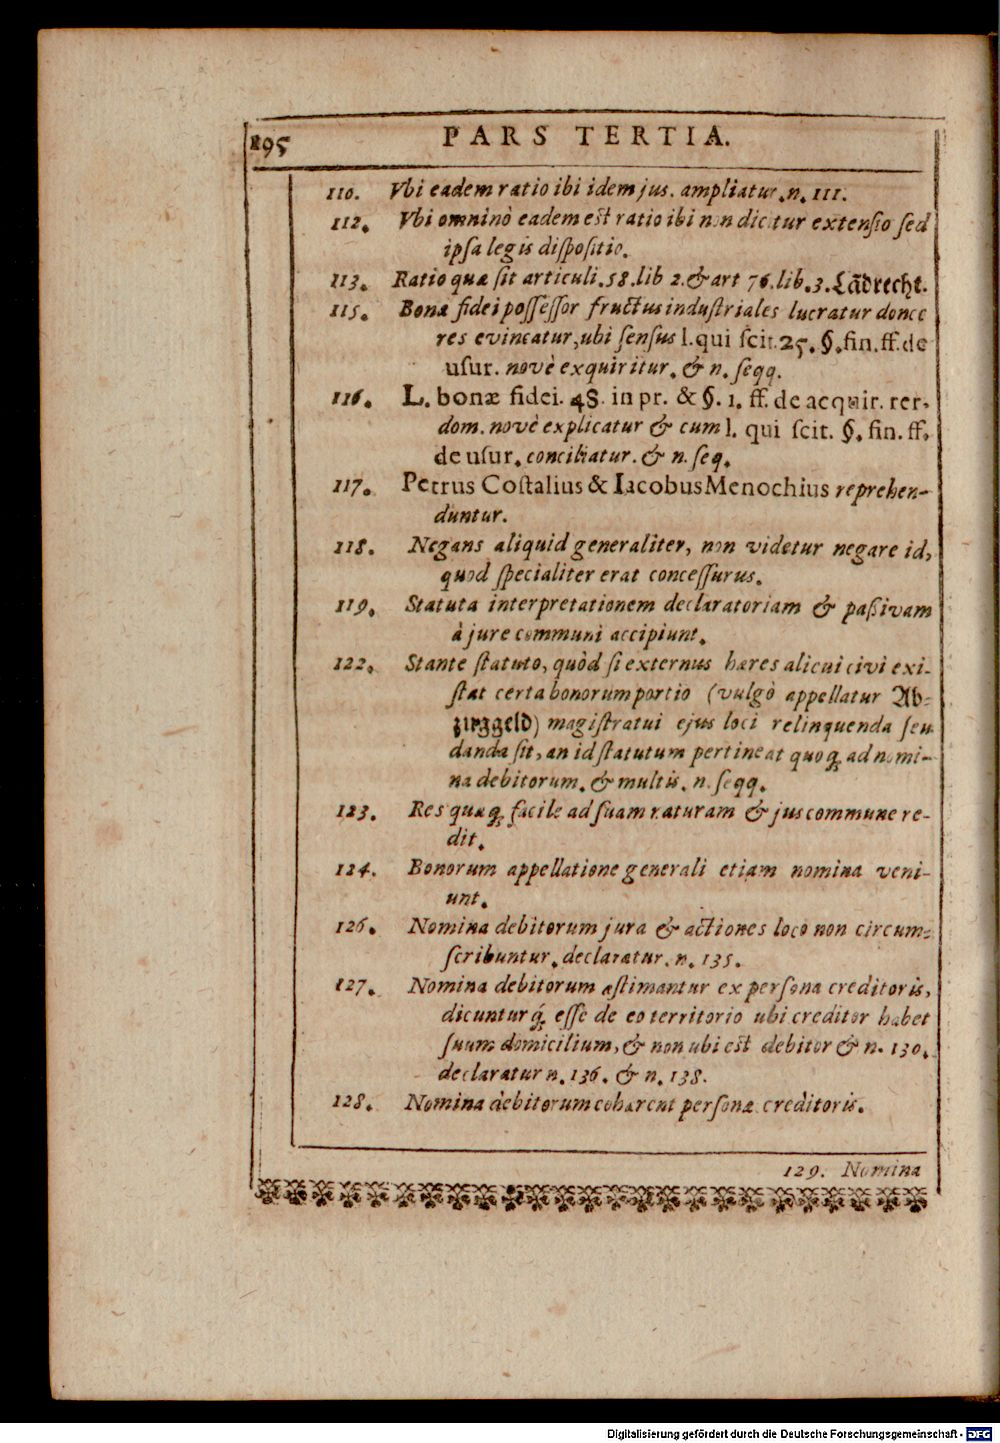 195 PARS TERTIA.
110. Vbi eadem ratio ibi idem jus. ampliatur. n. 111.
112. Vbi omninò eadem est ratio ibi non dicitur extensio sed
ipsa legis dispositio.
113. Ratio quæ sit articuli. 58. lib 2. & art 76. lib. 3. Lādrecht.
115. Bonæ fidei possessor fructus industriales lucratur donec
res evincatur, ubi sensus l. qui scit. 25. §. fin. ff. de
usur. novè exquiritur. & n. seqq.
116. L. bonæ fidei. 48. in pr. & §. 1. ff. de acquir. rer.
dom. novè explicatur & cum l. qui scit. §. fin. ff.
de usur. conciliatur. & n. seq.
117. Petrus Costalius & Iacobus Menochius reprehen-
duntur.
118. Negans aliquid generaliter, non videtur negare id,
quod specialiter erat concessurus.
119. Statuta interpretationem declaratoriam & passivam
à jure communi accipiunt.
122. Stante statuto, quòd si externus hæres alicui civi exi-
stat certa bonorum portio (vulgò appellatur Ab-
zuggeld) magistratui ejus loci relinquenda seu
danda sit, an id statutum pertineat quoq; ad nomi-
na debitorum. & multis. n. seqq.
123. Res quæq; facile ad suam naturam & jus commune re-
dit.
124. Bonorum appellatione generali etiam nomina veni-
unt.
126. Nomina debitorum jura & actiones loco non circum-
scribuntur. declaratur. n. 135.
127. Nomina debitorum æstimantur ex persona creditoris,
dicunturq; esse de eo territorio ubi creditor habet
suum domicilium, & non ubi est debitor & n. 130.
declaratur n. 136. & n. 138.
128. Nomina debitorum cohærent personæ creditoris.
129. Nomina
Digitalisierung gefördert durch die Deutsche Forschungsgemeinschaft - DFG